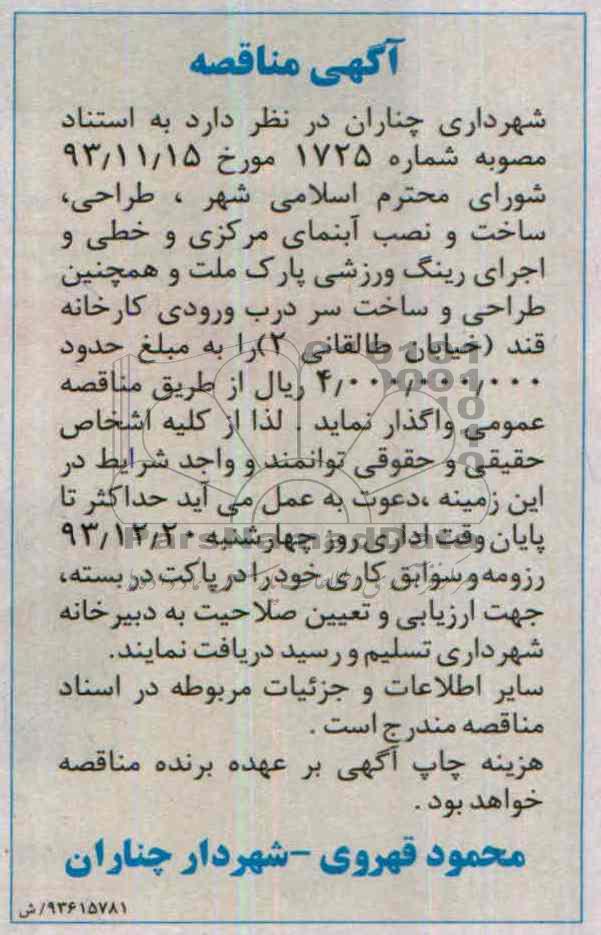 آگهی مناقصه
شهرداری چناران در نظر دارد به استناد
مصوبه شماره ۱۷۲۵ مورخ ۹۳٫۱۱٫۱۵
شورای محترم اسلامی شهر ، طراحی،
ساخت و نصب آبنمای مرکزی و خطی و
اجرای رینگ ورزشی پارک ملت و همچنین
طراحی و ساخت سر درب ورودی کارخانه
قند (خیابان طالقانی ۲)را به مبلغ حدود
۴٫۰۰۰٫۰۰۰٫۰۰۰ ریال از طریق مناقصه
عمومی واگذار نماید . لذا از کلیه اشخاص
حقیقی و حقوقی توانمند و واجد شرایط در
این زمینه ،دعوت به عمل می آید حداکثر تا
پایان وقت اداری روز چهارشنبه ۹۳٫۱۲٫۲۰
رزومه و سوابق کاری خود را در پاکت در بسته،
جهت ارزیابی و تعیین صلاحیت به دبیرخانه
شهرداری تسلیم و رسید دریافت نمایند.
سایر اطلاعات و جزئیات مربوطه در اسناد
مناقصه مندرج است .
هزینه چاپ آگهی بر عهده برنده مناقصه
خواهد بود .
محمود قهروی -شهردار چناران
۹۳۶۱۵۷۸۱/ش
ParsNamadData